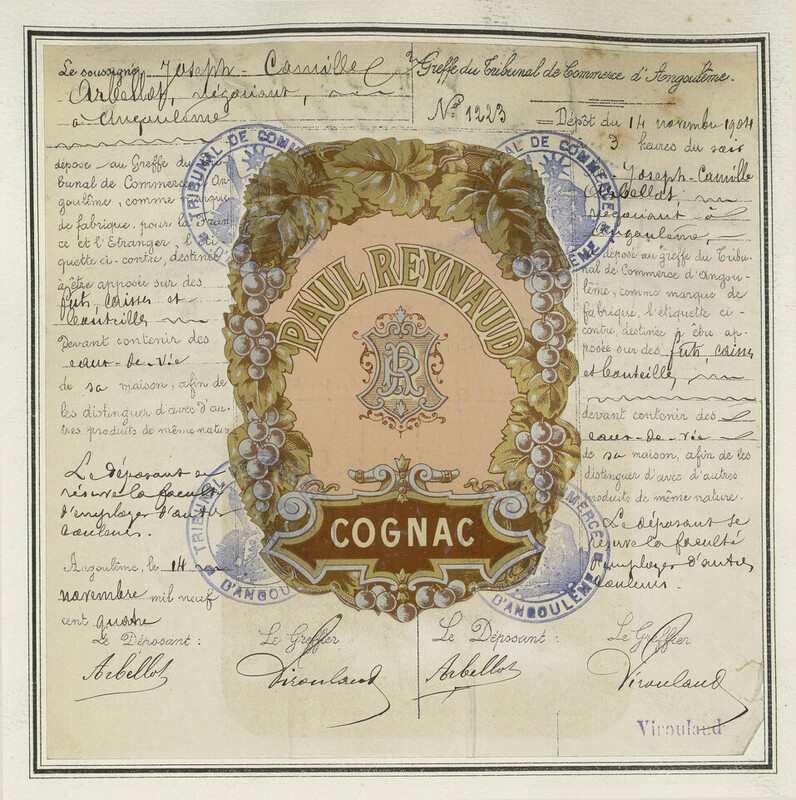 Le soussigné Joseph-Camille
Arbellot, négociant,
à Angoulême
dépose au Greffe du Tri-
bunal de Commerce d'An-
goulême, comme marque
de fabrique, pour la Fran-
ce et l'Etranger, l'éti-
quette ci-contre, destinée
à être apposée sur des
fûts, caisses et
bouteilles
Devant contenir des
eaux-de-vie
de sa maison, afin de
les distinguer d'avec d'au-
tres produits de même nature
Le déposant se
réserve la faculté
d'employer d'autres
couleurs.
Angoulême, le 14
novembre mil neuf
cent quatre
Le Déposant :
Arbellot
Le Greffier
Viroulaud
PAUL REYNAUD
PR
COGNAC
TRIBUNAL DE COMMERCE
D'ANGOULÊME
TRIBUNAL DE COMMERCE
D'ANGOULÊME
TRIBUNAL
D'ANGOULÊME
COMMERCE
D'ANGOULÊME
Greffe du Tribunal de Commerce d'Angoulême.
No 1223
Dépôt du 14 novembre 1904
3 heures du soir
Joseph-Camille
Arbellot,
négociant à
Angoulême,
a déposé au greffe du Tribu-
nal de Commerce d'Angou-
lême, comme marque de
fabrique, l'étiquette ci-
contre, destinée à être ap-
posée sur des fûts, caisses
et bouteilles,
devant contenir des
eaux-de-vie
de sa maison, afin de les
distinguer d'avec d'autres
produits de même nature.
Le déposant se
réserve la faculté
d'employer d'autres
couleurs.
Le Déposant :
Arbellot
Le Greffier
Viroulaud
Viroulaud